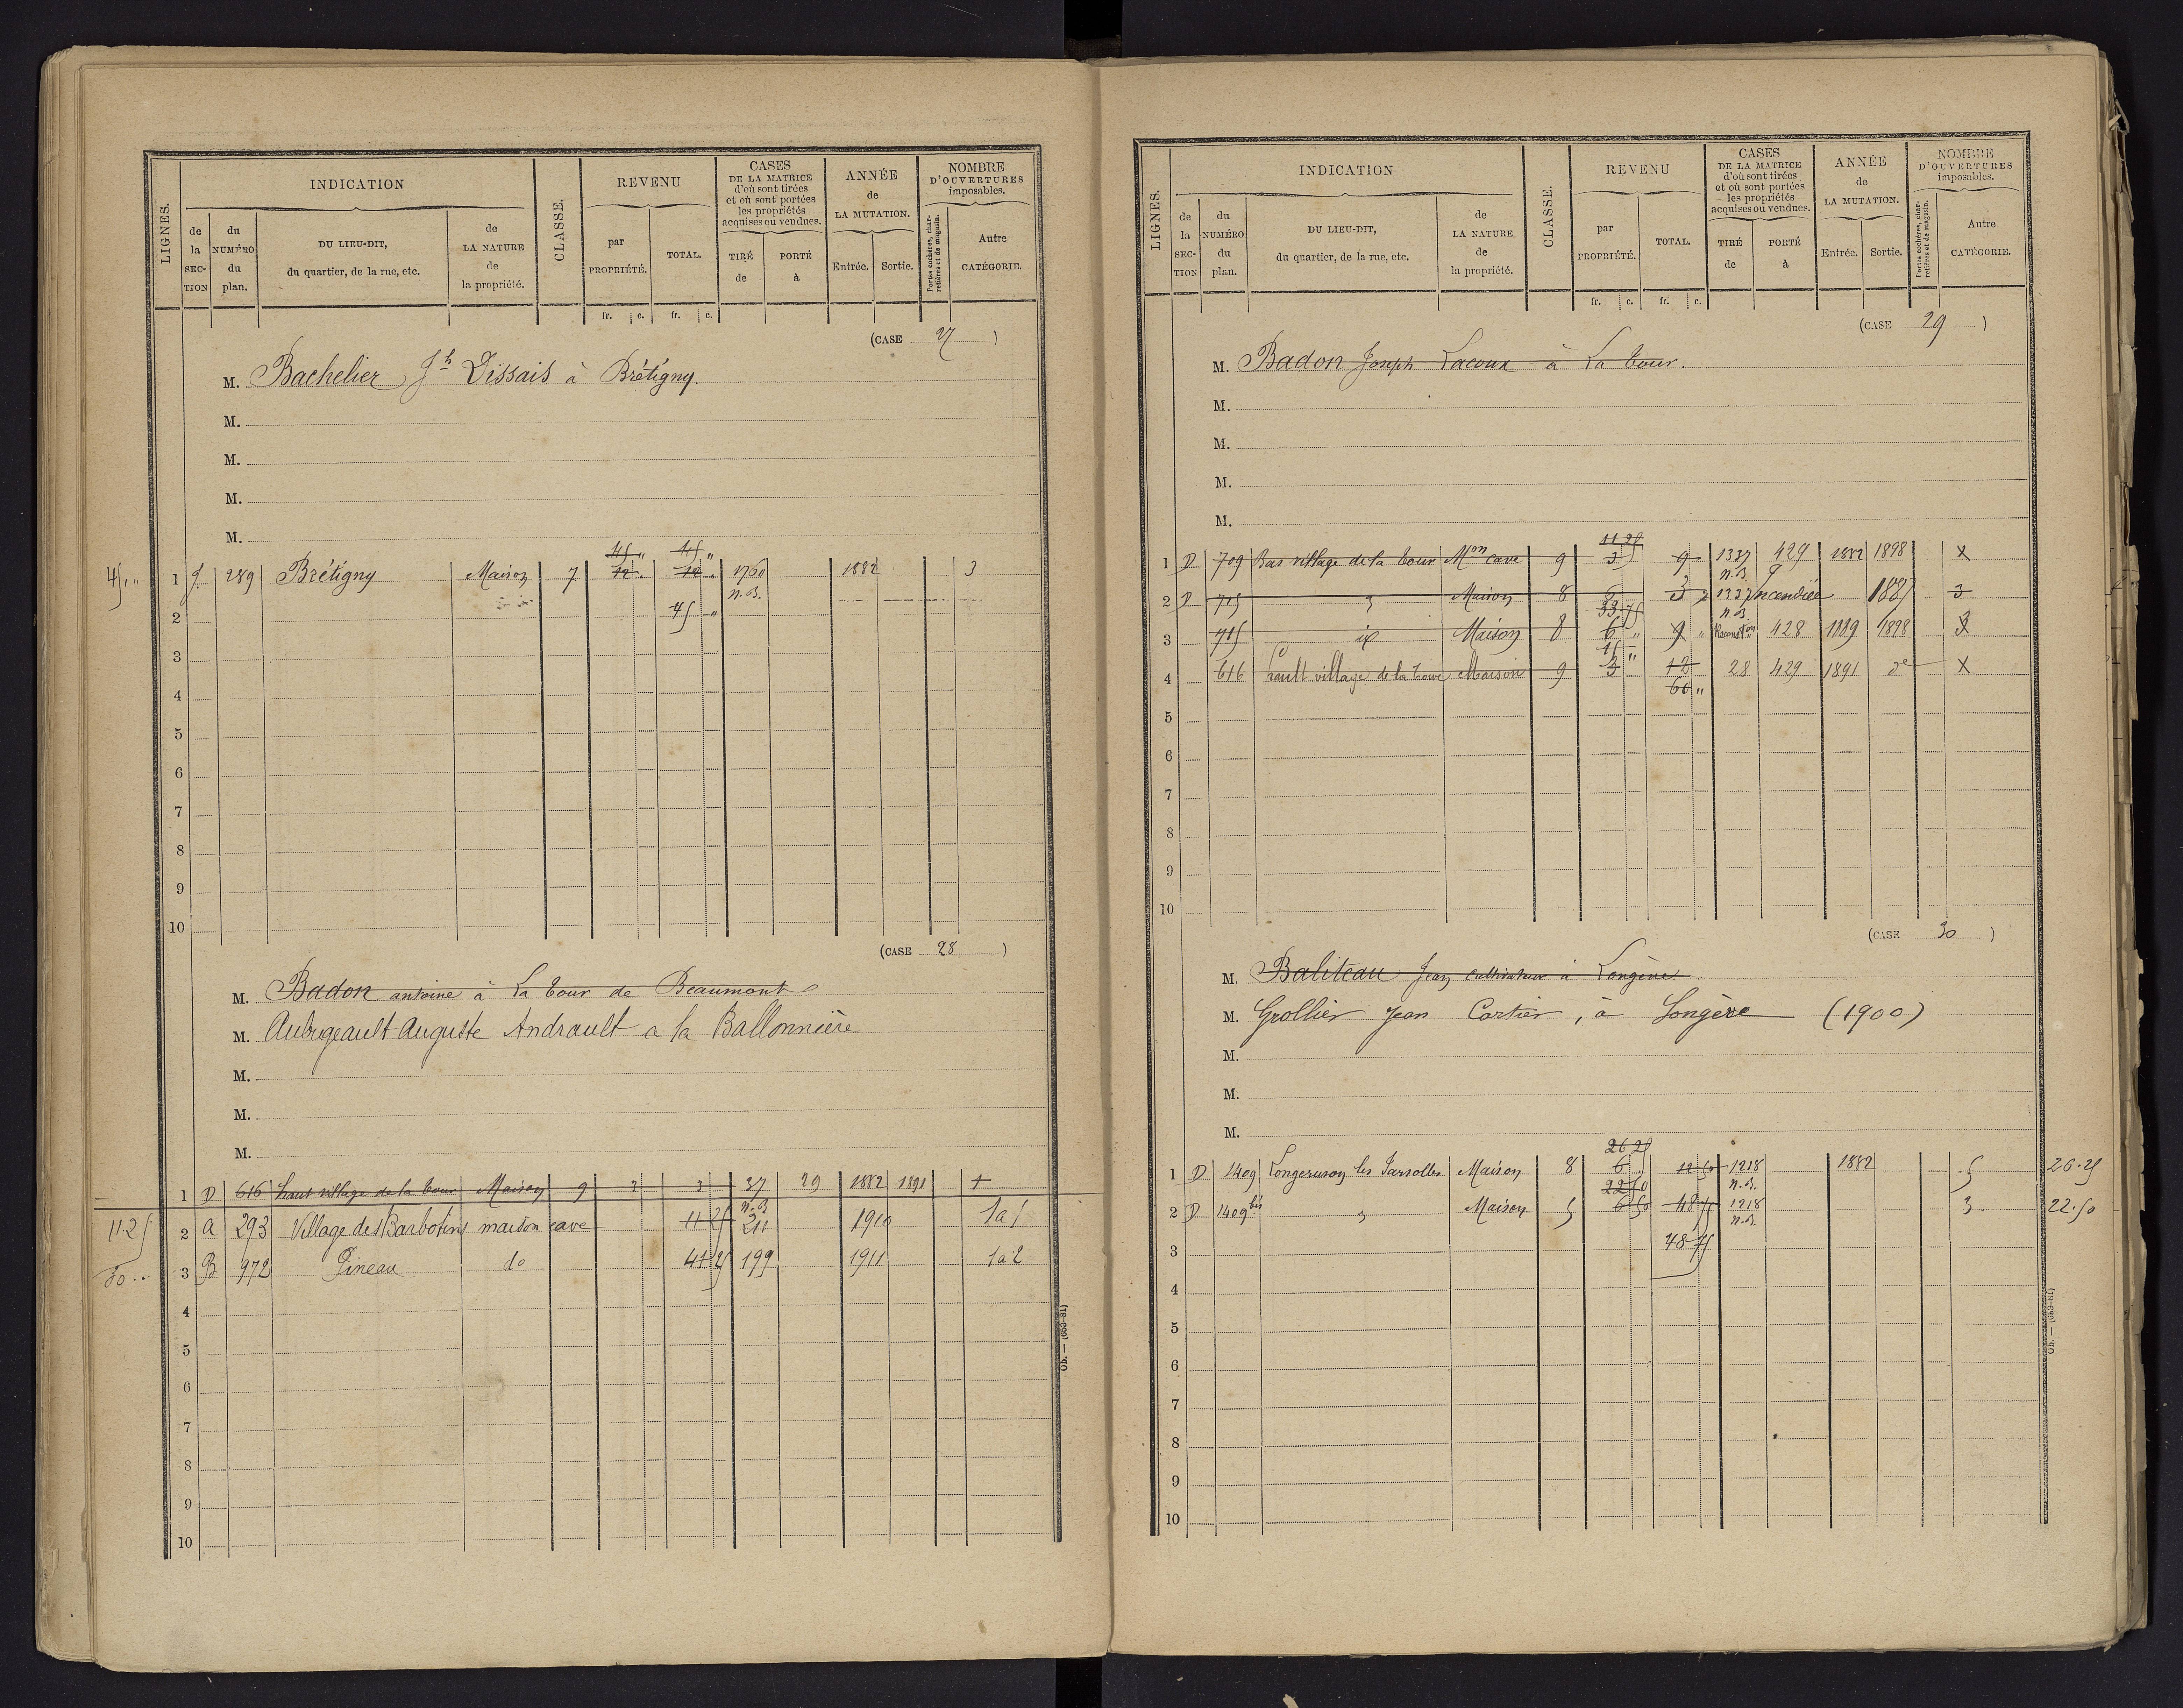 LIGNES.
INDICATION
de la SECTION
du NUMÉRO du plan.
DU LIEU-DIT, du quartier, de la rue, etc.
de LA NATURE de la propriété.
CLASSE.
REVENU
par PROPRIÉTÉ.
TOTAL.
fr. c. fr. c.
CASES DE LA MATRICE d'où sont tirées et où sont portées les propriétés acquises ou vendues.
TIRÉ de
PORTÉ à
ANNÉE de LA MUTATION.
Entrée. Sortie.
NOMBRE D'OUVERTURES imposables.
Portes cochères, charretières et de magasin.
Autre CATÉGORIE.
(CASE 27)
M. Bachelier Jh Dissais à Brétigny.
M.
M.
M.
M.
45 " 45 "
45 " 1 J 289 Brétigny Maison 7 12 " 12 " 1760 1882 3
n.B.
2 45 "
3
4
5
6
7
8
9
10
(CASE 28)
M. Badon antoine à La Tour de Beaumont
M. Aubugeault Auguste Andrault a la Ballonnière
M.
M.
M.
1 D 616 haut village de la Tour Maison 9 3 3 37 29 1882 1891 +
n.B
11.25 2 A 293 Village des Barbotins maison cave 11 25 211 1910 1a1
30 .. 3 B 972 Pineau do 41 25 199 1911 1a2
4
5
6
7
8
9
10
Ob. — (653-81)
LIGNES.
INDICATION
de la SECTION
du NUMÉRO du plan.
DU LIEU-DIT, du quartier, de la rue, etc.
de LA NATURE de la propriété.
CLASSE.
REVENU
par PROPRIÉTÉ.
TOTAL.
fr. c. fr. c.
CASES DE LA MATRICE d'où sont tirées et où sont portées les propriétés acquises ou vendues.
TIRÉ de
PORTÉ à
ANNÉE de LA MUTATION.
Entrée. Sortie.
NOMBRE D'OUVERTURES imposables.
Portes cochères, charretières et de magasin.
Autre CATÉGORIE.
(CASE 29)
M. Badon Joseph Lacoux à La Tour.
M.
M.
M.
M.
11 25
1 D 709 Bas village de la Tour Mon cave 9 3 9 1337 429 1882 1898 X
n.B.
2 D 715 Maison 8 6 3 1337 Incendiée 1887 3
33 75 n.B
3 715 id Maison 8 6 " 9 " Reconston 428 1889 1898 3
15 "
4 616 hault village de la Tour Maison 9 3 12 28 429 1891 do X
60 "
5
6
7
8
9
10
(CASE 30)
M. Baliteau Jean cultivateur à Longève
M. Grollier Jean Cartier, à Longève (1900)
M.
M.
M.
26 25
1 D 1409 Maison 8 6 12 50 1218 1882 5 26.25
22 50 n.B.
2 D 1409 bis Maison 5 6 50 48 75 1218 3 22.50
n.B.
3 48 75
4
5
6
7
8
9
10
Ob. — (653-81)